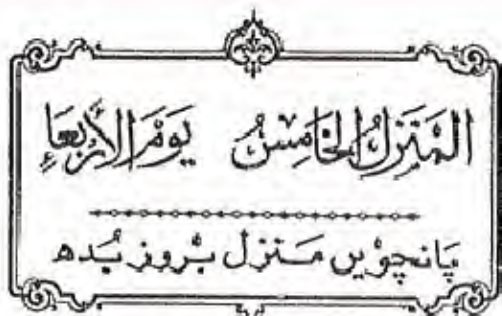 المَنزِلُ الخَامِسُ يَوْمَ الأَرْبِعَاءِ
پَانچویں مَنزل بَروز بُدھ